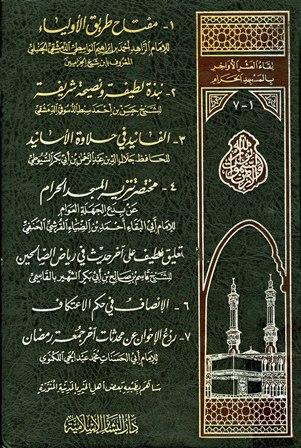 لقاء العشر الأواخر
بالمسجد الحرام
٧-١
١- مفتاح طريق الأولياء
للإمام الزاهد أحمد بن إبراهيم الواسطي الدمشقي الحنبلي
المعروف بابن شيخ الحزاميين
٢- نبذة لطيفة ونصيحة شريفة
للشيخ حسن بن أحمد سبط الدسوقي الدمشقي
٣- الفانيد في حلاوة الأسانيد
للحافظ جلال الدين عبد الرحمن بن أبي بكر السيوطي
٤- مختصر تنزيه المسجد الحرام
عن بدع الجهلة العوام
للإمام أبي البقاء أحمد بن الضياء القرشي الحنفي
تعليق لطيف على آخر حديث في رياض الصالحين
للشيخ قاسم بن صالح بن أبي بكر الشهير بالقاسمي
٦- الإنصاف في حكم الاعتكاف
٧- ردع الإخوان عن محدثات آخر جمعة رمضان
للإمام أبي الحسنات محمد عبد الحي اللكنوي
ساهم بطبعه بعض أهل الخير بالمدينة المنورة
دار البشائر الإسلامية